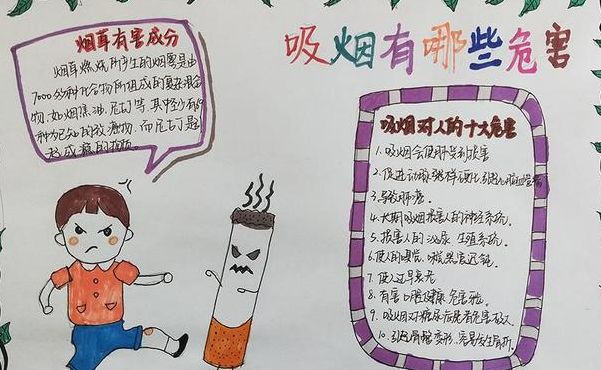 吸烟有哪些危害
烟草有害成分
烟草燃烧所产生的烟雾是由
7000多种化合物所组成的复杂混合
物,如烟焦油,尼古丁等,其中
种为已知的致癌物,而尼古丁是
成瘾的
吸烟对人的十大危害
1.吸烟会使肺受到损害
2.促进动脉粥样硬化,引起心脑血管
3.导致肺癌。
4.长期吸烟损害人的神经系统。
5.损害人的泌尿生殖系统。
6.使人的嗅觉,味觉迟钝。
7.使人过早衰老
8.有害口腔健康,危害
9.吸烟对糖尿病患者危害极大
10.引起骨骼变形,容易发生骨折。